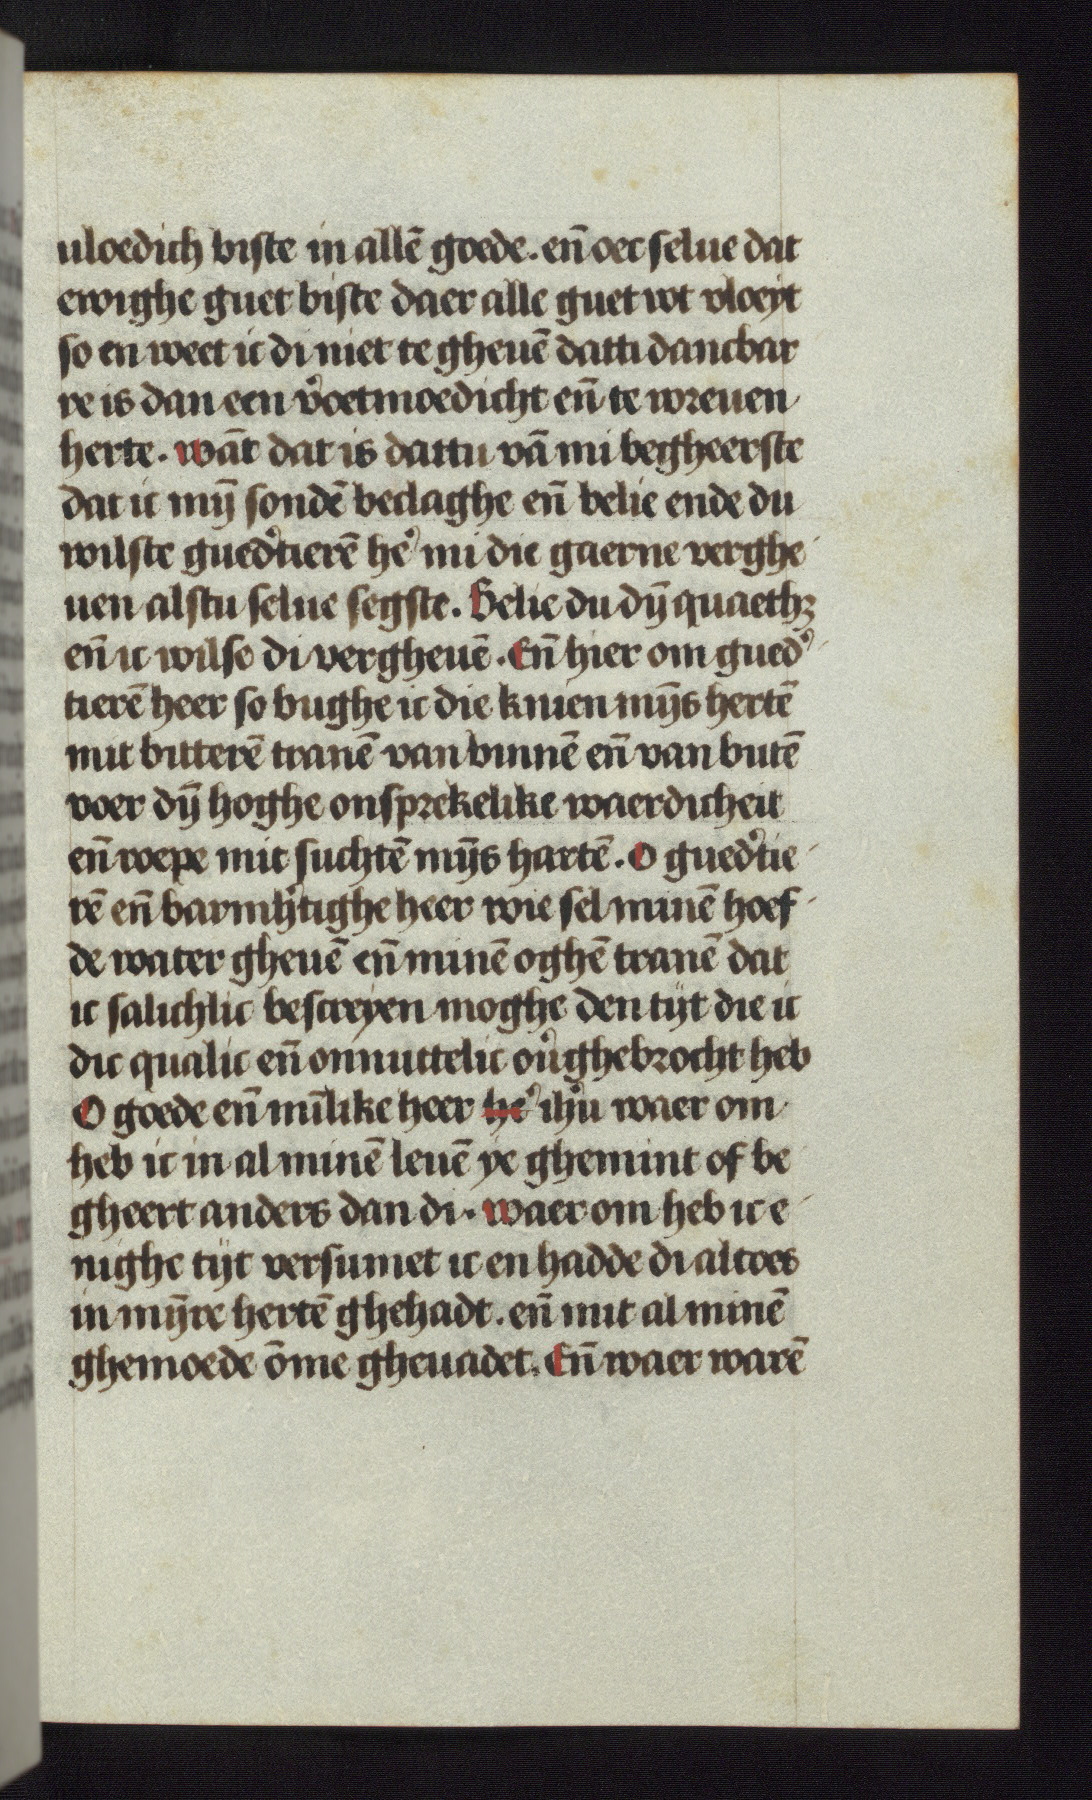 uloedich biste in allē goede. en̄ oec selue dat
ewighe guet biste daer alle guet wt vloeyt
so en weet ic di niet te gheuē datti dancbar
re is dan een v̓oetmoedicht en̄ te wreuen
herte. wāt dat is dattu vā mi begheerste
dat ic mȳ sondē beclaghe en̄ belie ende du
wilste gued̓tierē he̓ mi dic gaerne verghe
uen alstu selue segste. Belie du dȳ quaethꝫ
en̄ ic wilse di vergheuē. En̄ hier om gued̓
tierē heer so bughe ic die knien mȳs hertē
mit bitterē tranē van binnē en̄ van butē
voer dȳ hoghe onsprekelike waerdicheit
en̄ wepe mit suchtē mȳs hartē. O gued̓tie
rē en̄ barmh̓tighe heer wie sel minē hoef
de water gheuē en̄ minē oghē tranē dat
ic salichlic bescreyen moghe den tijt die ic
dic qualic en̄ onnuttelic ou̓ghebrocht heb
O goede en̄ min̄like heer he̓ ihu̓ waer om
heb ic in al minē leuē ye ghemint of be
gheert anders dan di. waer om heb ic e
nighe tijt versumet ic en hadde di altoes
in mȳre hertē ghehadt. en̄ mit al minē
ghemoede ōme gheuadet. En̄ waer warē